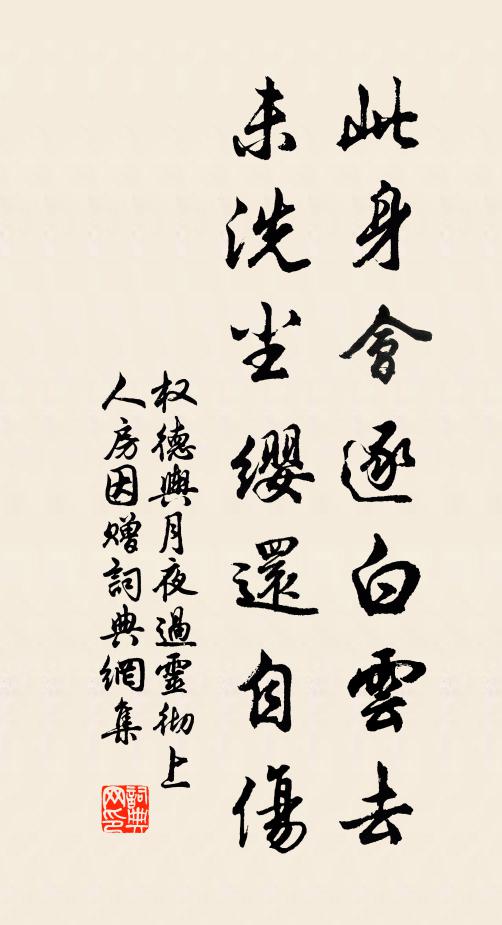 此身會逐白雲去
未洗尘缨還自傷
权德輿月夜過靈彻上
人房因赠詞典網集
詞典网印